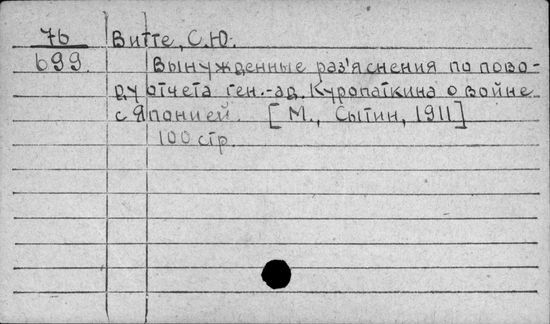 76 Витте, С.Ю.
699. Вынужденные раз'яснения по пово-
ду отчета ген.-ад. Куропаткина о войне
с Японией. [М., Сытин, 1911]
100 стр.